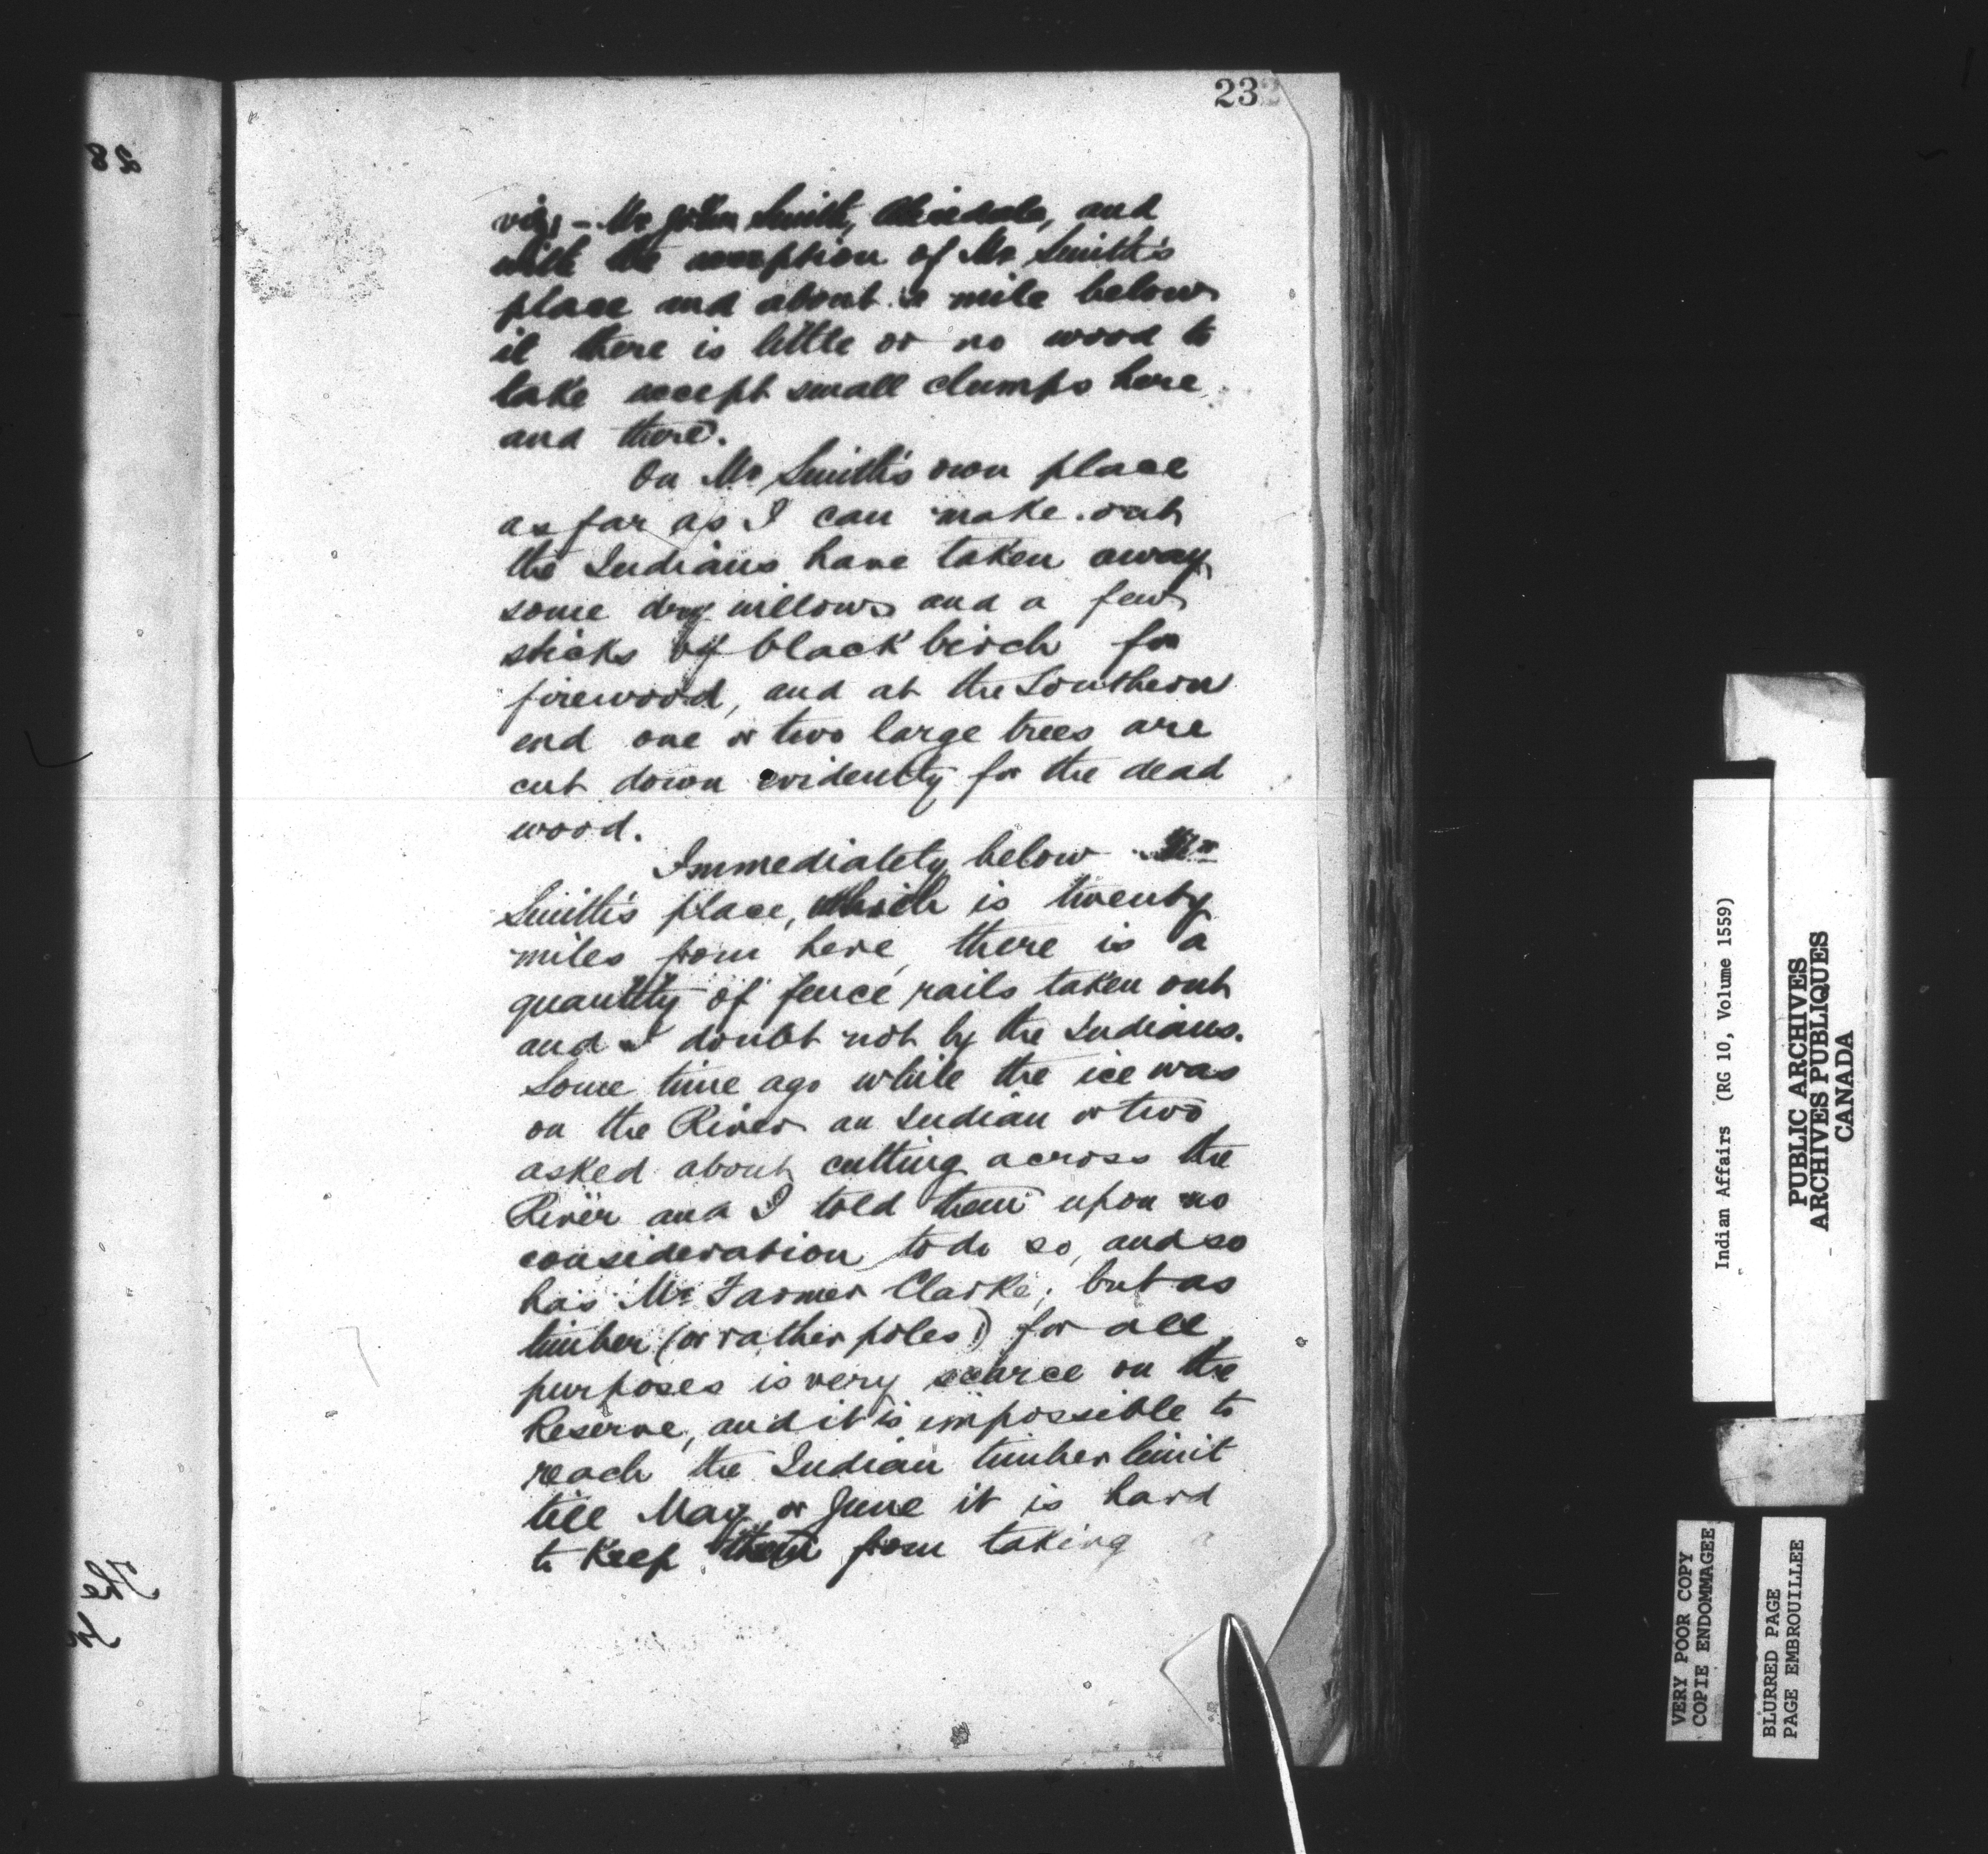 232
viz, – Mr John Smith, and
with the exception of Mr Smith's
place and about a mile below
it there is little or no wood to
take except small clumps here
and there.
On Mr Smith's own place
as far as I can make out
the Indians have taken away
some dry willows and a few
sticks of black birch for
firewood, and at the Southern
end one or two large trees are
cut down evidently for the dead
wood.
Immediately below Mr
Smith's place, which is twenty
miles from here, there is a
quantity of fence rails taken out
and I doubt not by the Indians.
Some time ago while the ice was
on the River an Indian or two
asked about cutting across the
River and I told them upon no
consideration to do so, and so
has Mr Farmer Clarke; but as
timber (or rather poles) for all
purposes is very scarce on the
Reserve, and it is impossible to
reach the Indian timber limit
till May or June it is hard
to keep them from taking
Indian Affairs (RG 10, Volume 1559)
PUBLIC ARCHIVES
ARCHIVES PUBLIQUES
CANADA
VERY POOR COPY
COPIE ENDOMMAGEE
BLURRED PAGE
PAGE EMBROUILLEE